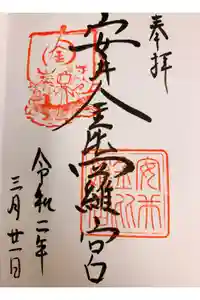 奉拝
安井金比羅宮
令和二年
三月廿一日